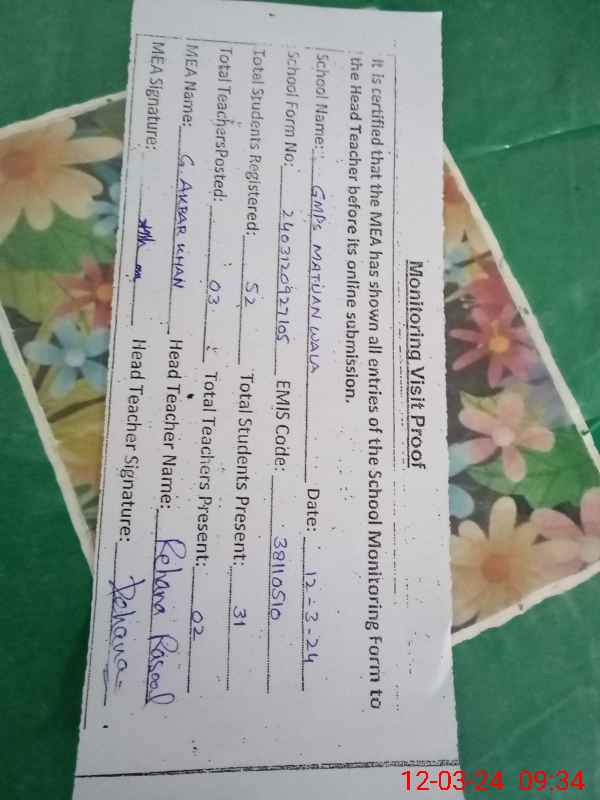 Monitoring Visit Proof
It is certified that the MEA has shown all entries of the School Monitoring Form to
the Head Teacher before its online submission.
School Name: GMPS MATUAN WALA Date: 12-3-24
School Form No: 2403120927105 EMIS Code: 38110510
Total Students Registered: 52 Total Students Present: 31
Total TeachersPosted: 03 Total Teachers Present: 02
MEA Name: G. AKBAR KHAN Head Teacher Name: Rehana Rasool
MEA Signature: Head Teacher Signature: Rehana
12-03-24 09:34